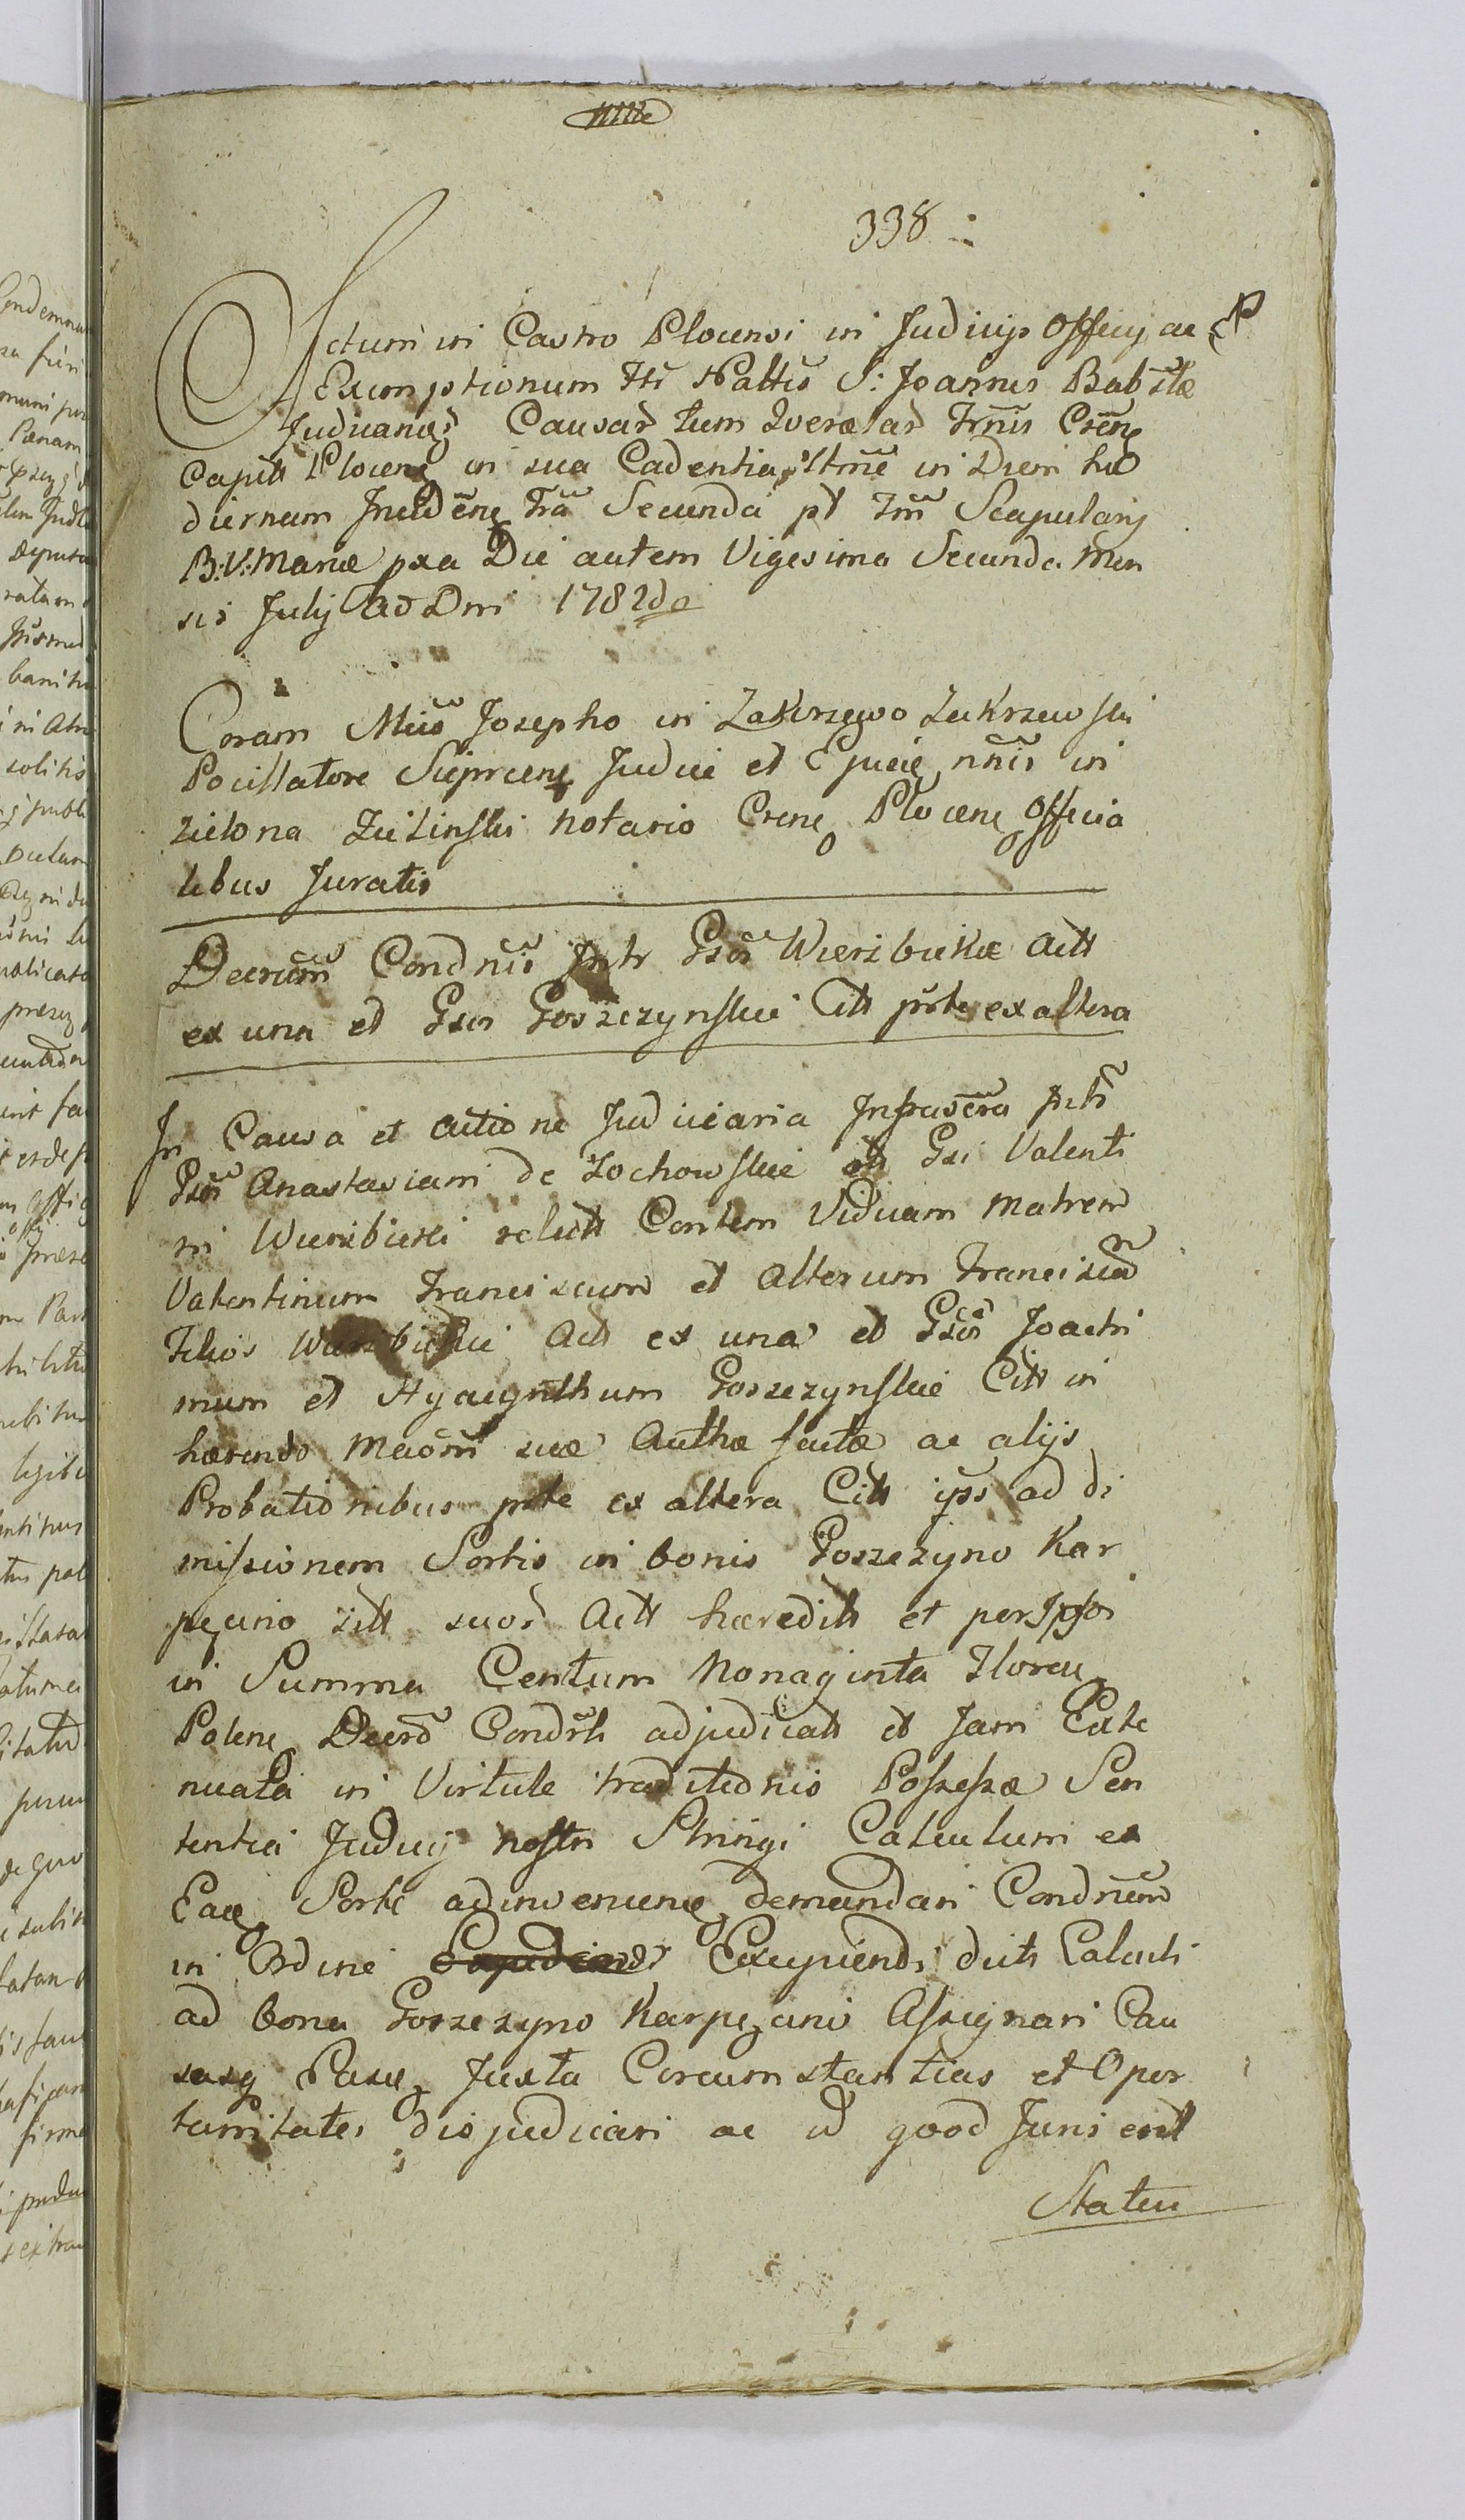 338
Actum in Castro Plocensi in Judicijs Officij ac P
Exemptionum Ttr Nattis S: Joannis Babstæ
Judicanđ Causar tum Querelar Trnis Crēnę
Capitt Plocenę in sua Cadentia in Diem ho
diernam Incidēnę Fra Secunda pt Fm̃ Scapularij
B:V:Mariæ pxa Die autem Vigesima Secunda Men
sis Julij AD Dni 1782do
Coram Mttis Josepho in Zakrzewo Zakrzewski
Pocillatore Sieprcenę Judice et Epucie nn̄is in
Zielona Zielinski Notario Crenę Plocenę Officia
libus Juratis
Decrūm Condn̄is Intr Gsōs Wierzbickie Actt
ex una et Gsos Goszczynskie Citt prte ex altera
In Causa et Actione Judiciaria Infrascr̄a Intr̃
Gsōs Anastasiam de Zochowskie olt Gsi Valenti
ni Wierzbicki relictt Contem Viduam Matrem
Valentinum Franciscum et Alterum Franciscū
Filios Wierzbickie Act ex una et Gsōs Joachi
mum et Hyacynthum Goszczynskie Citt in
hærendo Maōni suæ Authæ factæ ac alijs
Probationibus prte ex altera Citt ips̃ ad di
missionem Sortis in bonis Goszczyno Kar
pęcino sitt suor̃ Actt hæredits et per Ipsos
in Summa Centum Nonaginta Floren
Polenę Decrõ Condrts adjudicatt et Jam Exte
nuata in Virtute traditionis Possessæ Sen
tentia Judicij nostri Stringi Calculum ex
Eaę Sorte adinvenienę demandari Condn̄em
in Ordine Excipiendi dicts Calculi
ad bona Goszczyno Karpęcino Assignari Cau
sasq Pasę Juxta Circumstantias et Opor
tunitates disjudicari ac id quod Juris erit
Statu